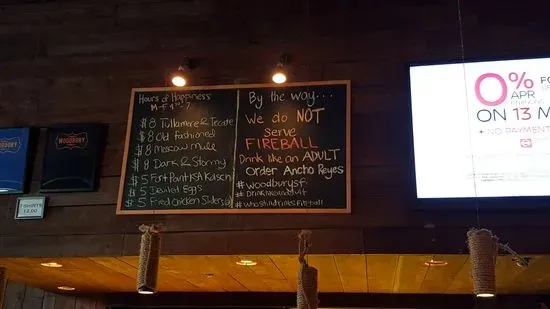 WOODBURY
WOODBURY
T-SHIRTS
Hours of Happiness
M-F 4-7
$8 Tullamore & Tecate
$8 Old fashioned
$8 Moscow mule
$8 Dark & Stormy
$5 Fort Point KSA Kolsch
$5 Deviled Eggs
$5 Fried Chicken Sliders
By the way...
We do NOT
serve
FIREBALL
Drink like an ADULT
Order Ancho Reyes
#woodburysf
0%
APR
FINANCING
ON 13 M
+ NO PAYMENT